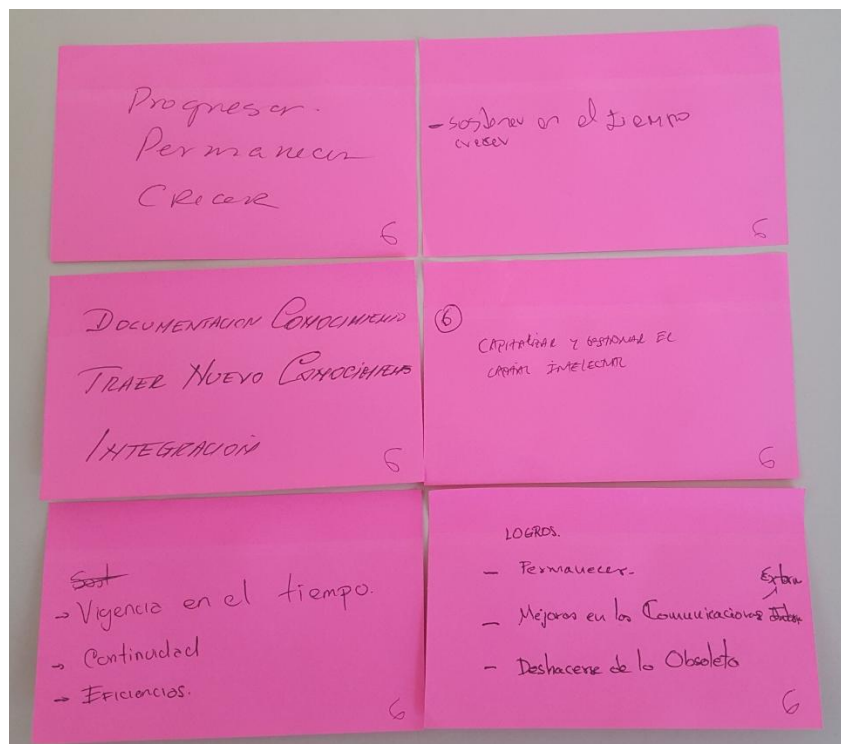 Progresar.
Permanecer
Crecer
6
- Sostener en el tiempo
crecer
6
DOCUMENTACION CONOCIMIENTO
TRAER NUEVO CONOCIMIENTO
INTEGRACIÓN
6
6
CAPITALIZAR Y GESTIONAR EL
CAPITAL INTELECTUAL
6
→ Vigencia en el tiempo.
→ Continuidad
→ Eficiencias.
6
LOGROS.
- Permanecer.
Extern
- Mejoras en las Comunicaciones
- Deshacerse de lo Obsoleto
6